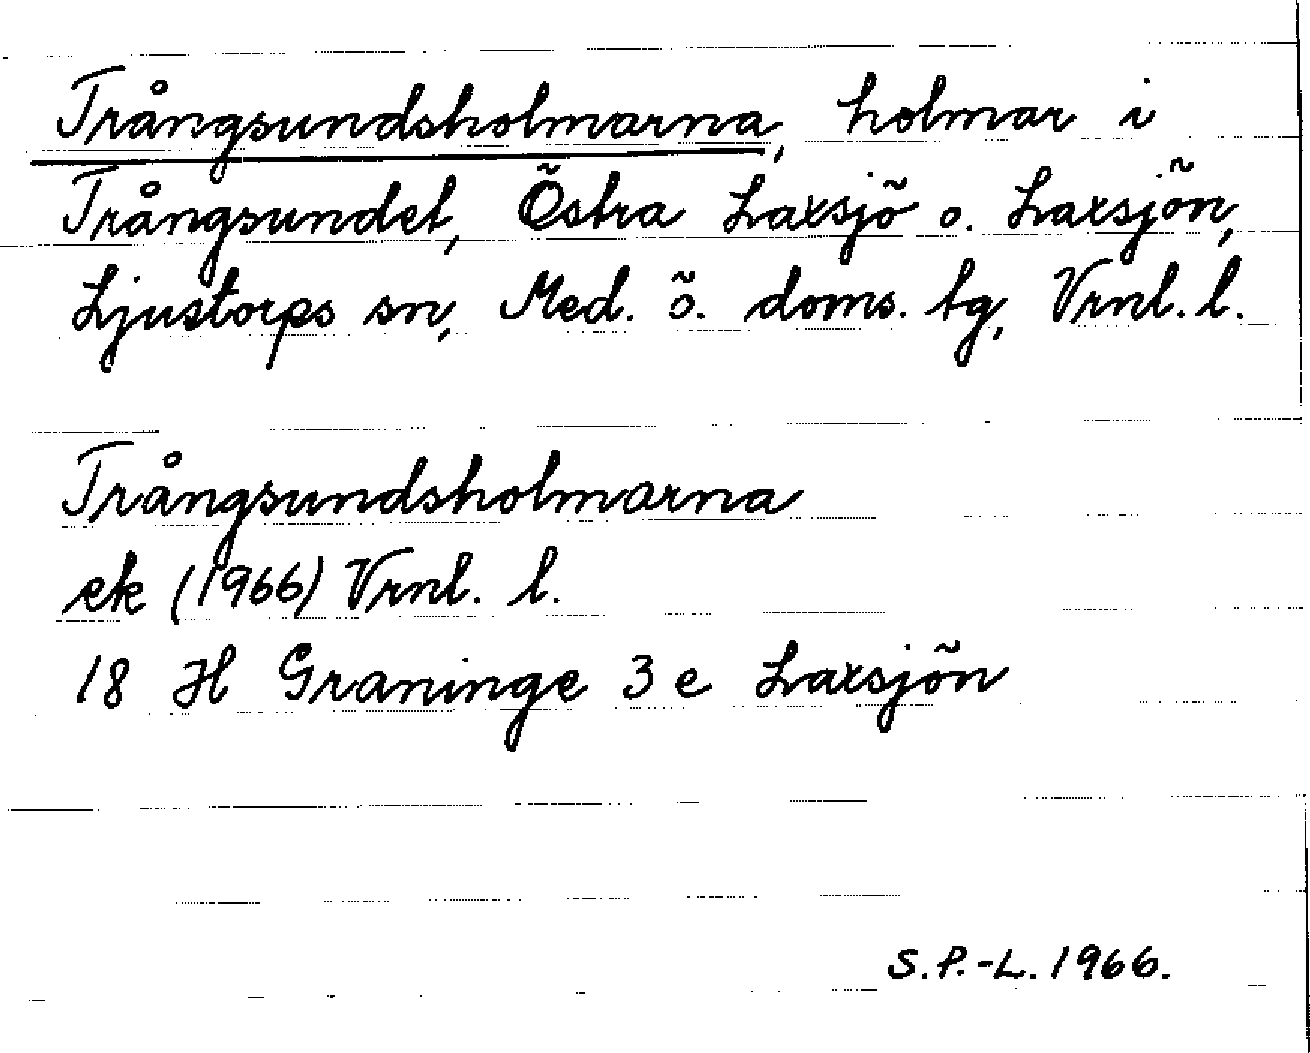 Trångsundsholmarna, holmar i
Trångsundet, Östra Laxsjö o. Laxsjön,
Ljustorps sn, Med. ö. doms. tg, Vrnl. l.
Trångsundsholmarna
ek (1966) Vrnl. l.
18 H Graninge 3 e Laxsjön
S.P.-L. 1966.